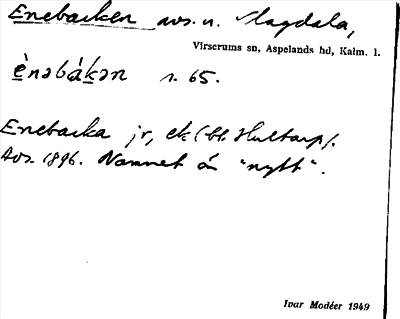 Enebacken avs. u. Slagdala,
Virserums sn, Aspelands hd, Kalm. l.
ènəbákən s. 65.
Enebacka jr, ek (bl. Hultarp).
Avs. 1896. Namnet är "nytt".
Ivar Modéer 1949